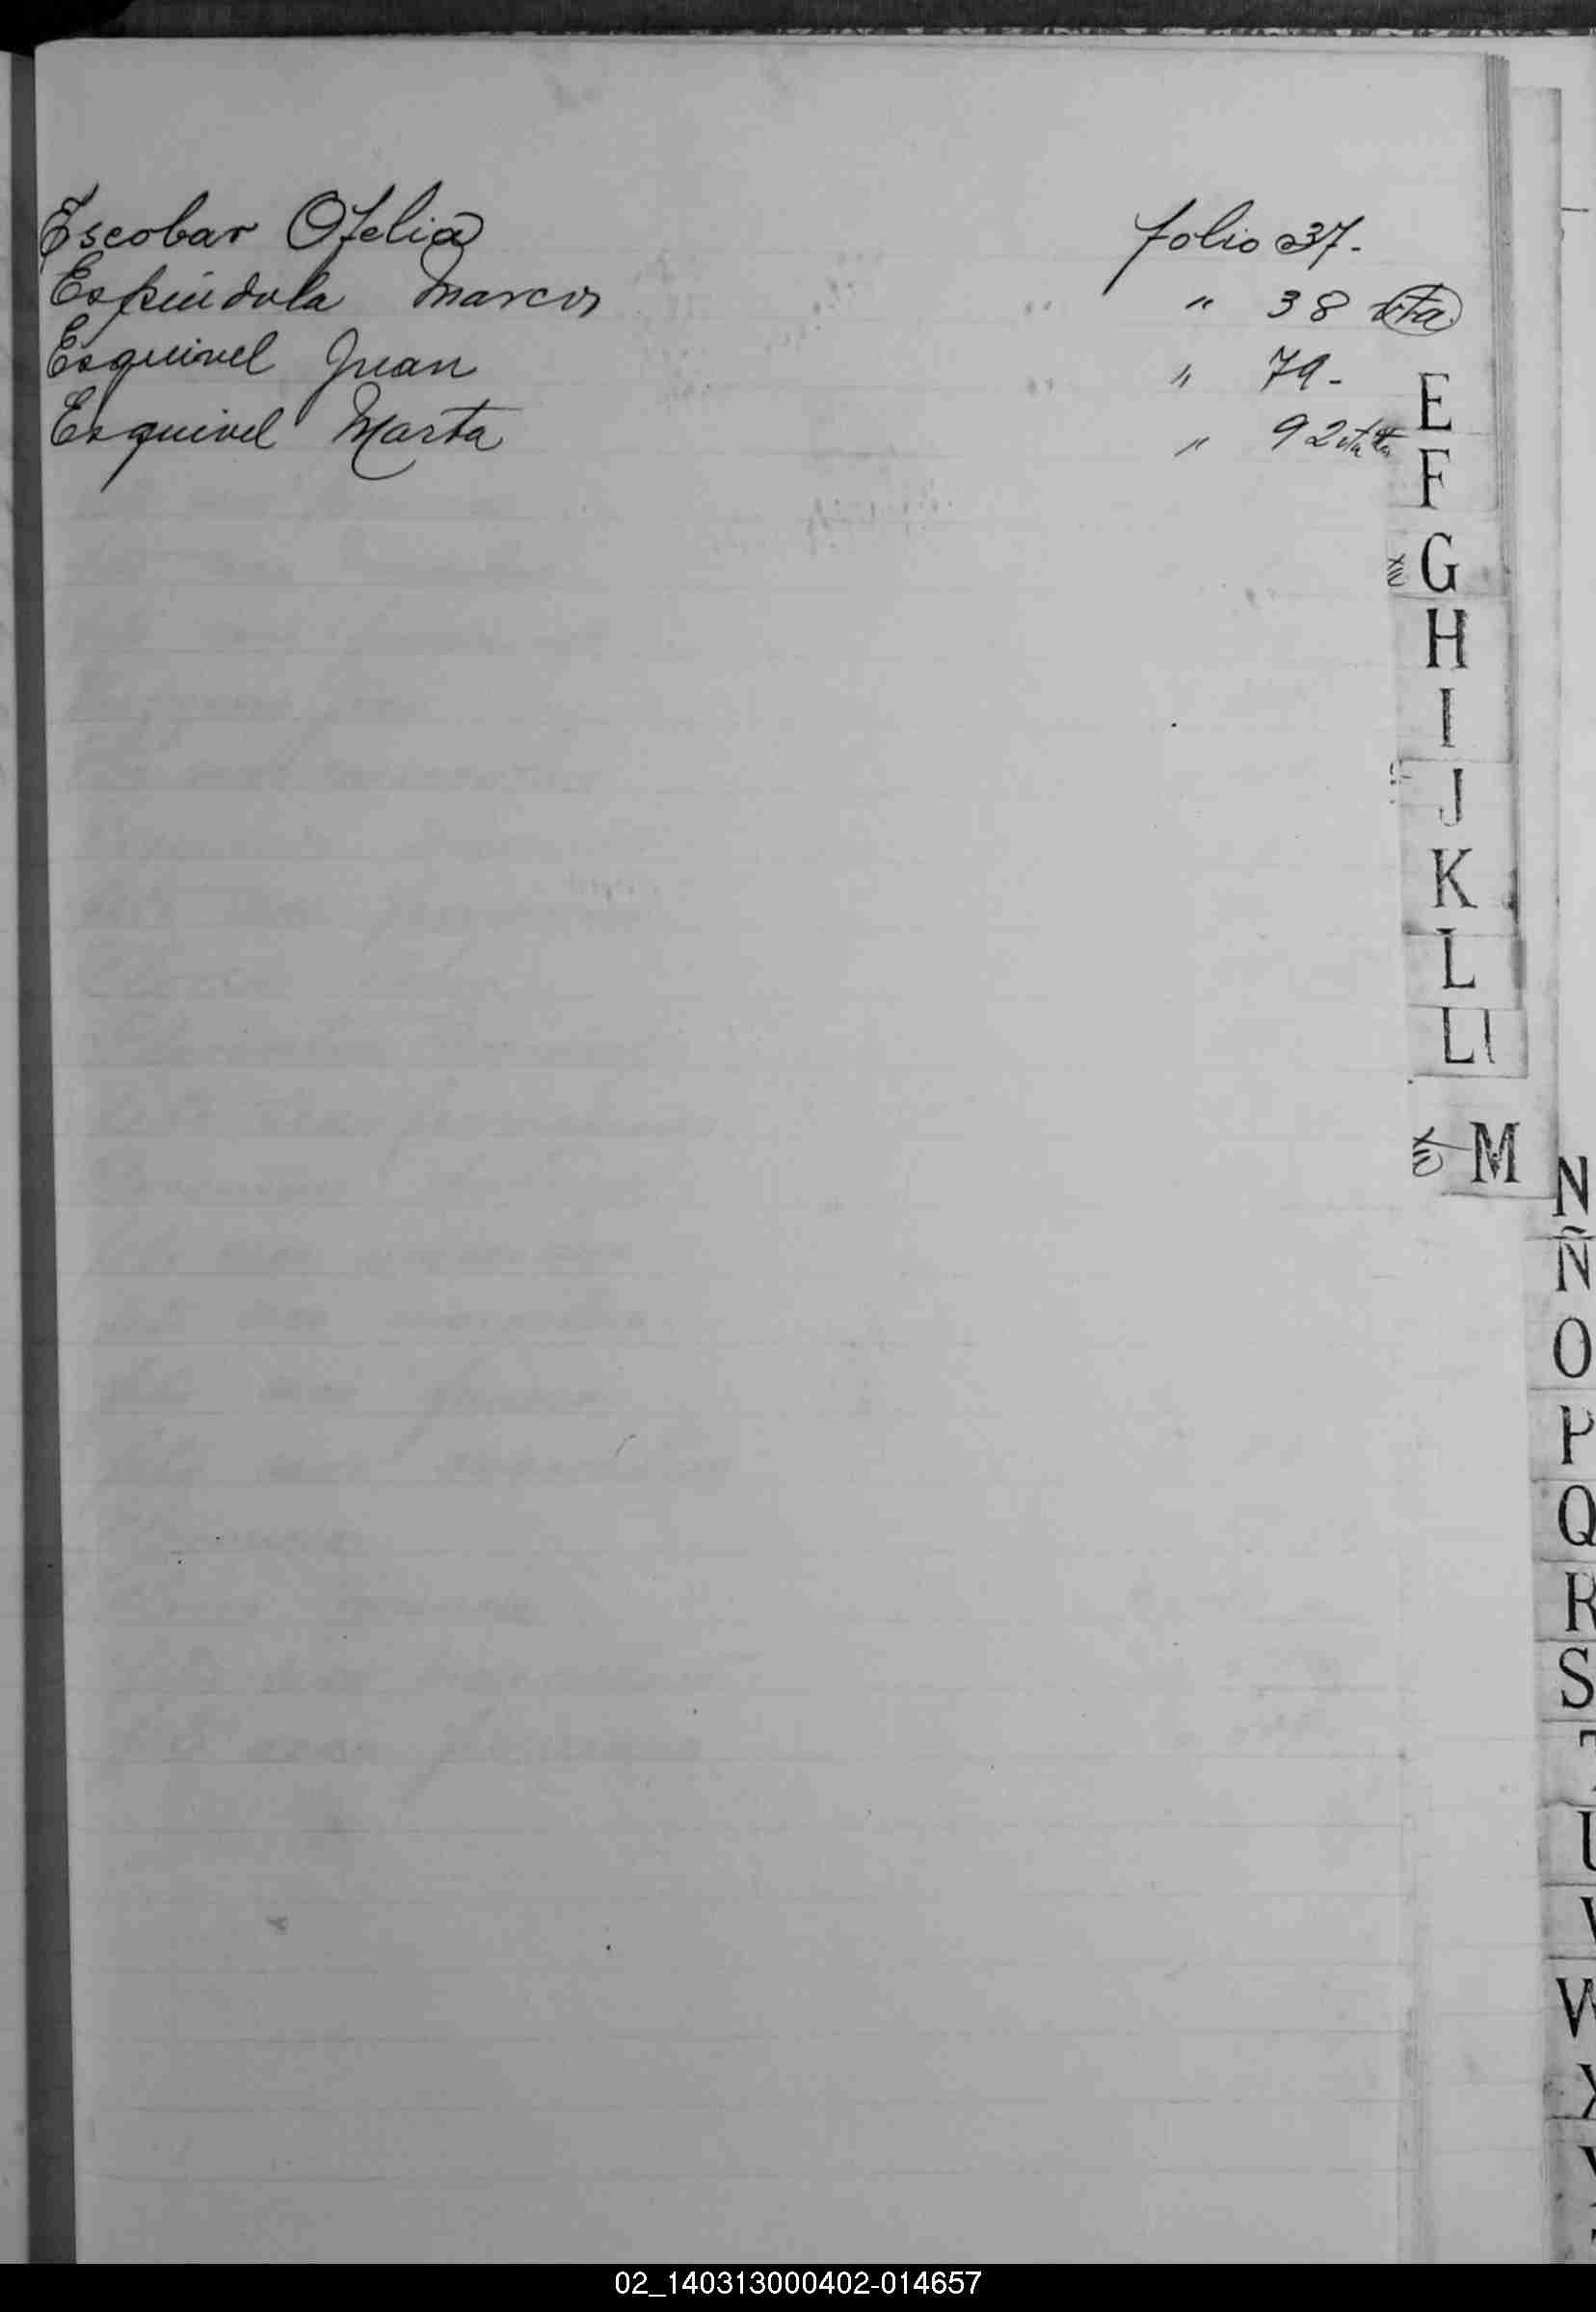 Escobar Ofelia folio 37.-
Espíndola Marcos " 38 vta.
Esquivel Juan " 79.-
Esquivel Marta " 92 vta
E
F
G
H
I
J
K
L
Ll
M
N
Ñ
O
P
Q
R
S
T
U
V
W
X
02_140313000402-014657